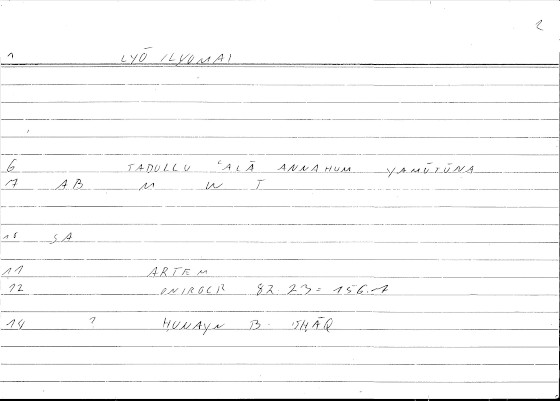 2
1 LYŌ ILYOMAI
6 TADULLU ʿALĀ ANNAHUM YAMŪTŪNA
7 AB M W T
SA
11 ARTEM
12 ONIROCR 82. 23 = 156.7
14 ? HUNAYN B.